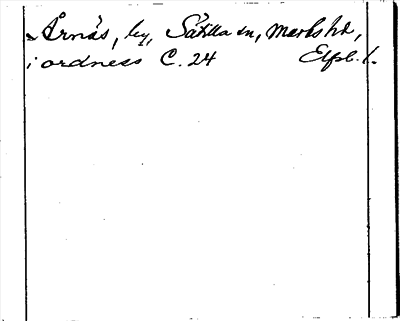 Årnås, by, Sätila sn, Marks hd,
jordness C. 24 Elfsb. l.